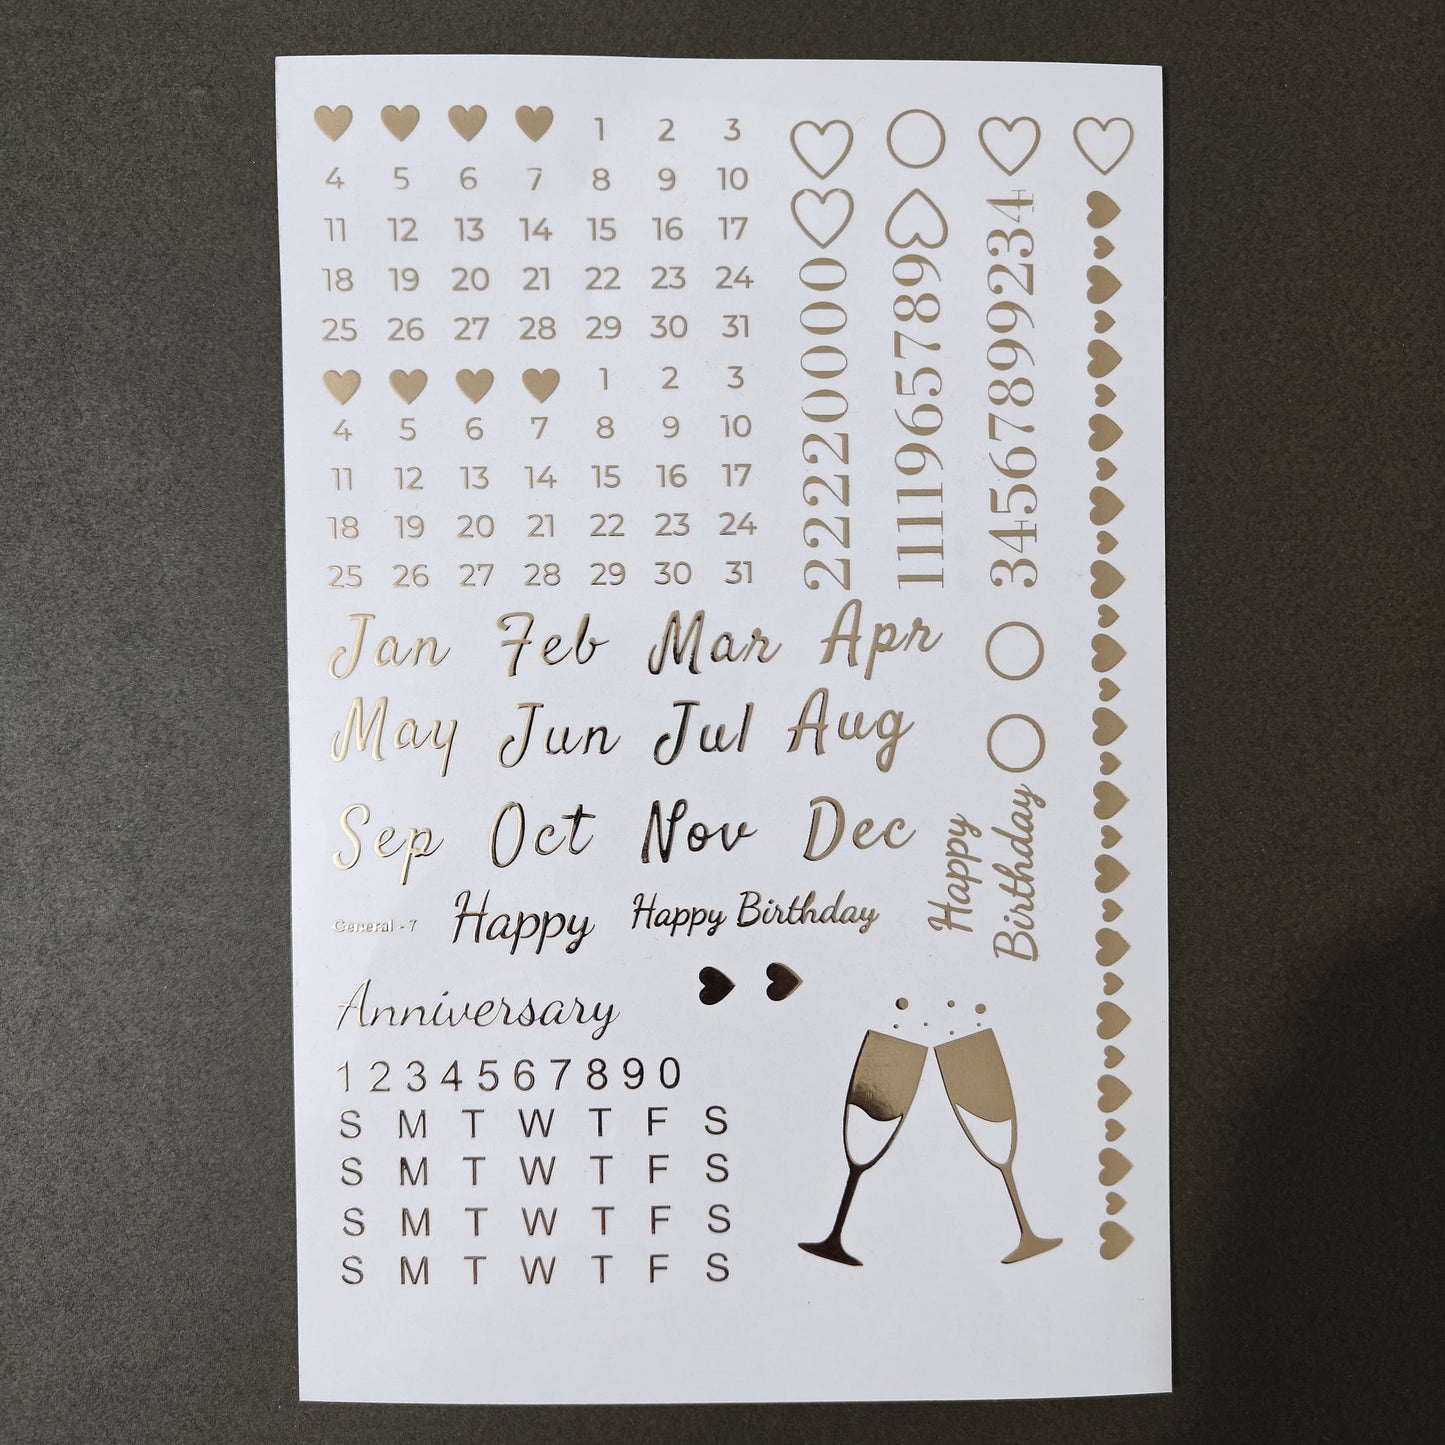 1 2 3
4 5 6 7 8 9 10
11 12 13 14 15 16 17
18 19 20 21 22 23 24
25 26 27 28 29 30 31
1 2 3
4 5 6 7 8 9 10
11 12 13 14 15 16 17
18 19 20 21 22 23 24
25 26 27 28 29 30 31
222200000
1111965789
345678999234
Jan Feb Mar Apr
May Jun Jul Aug
Sep Oct Nov Dec
General - 7
Happy
Happy Birthday
Happy
Birthday
Anniversary
1 2 3 4 5 6 7 8 9 0
S M T W T F S
S M T W T F S
S M T W T F S
S M T W T F S